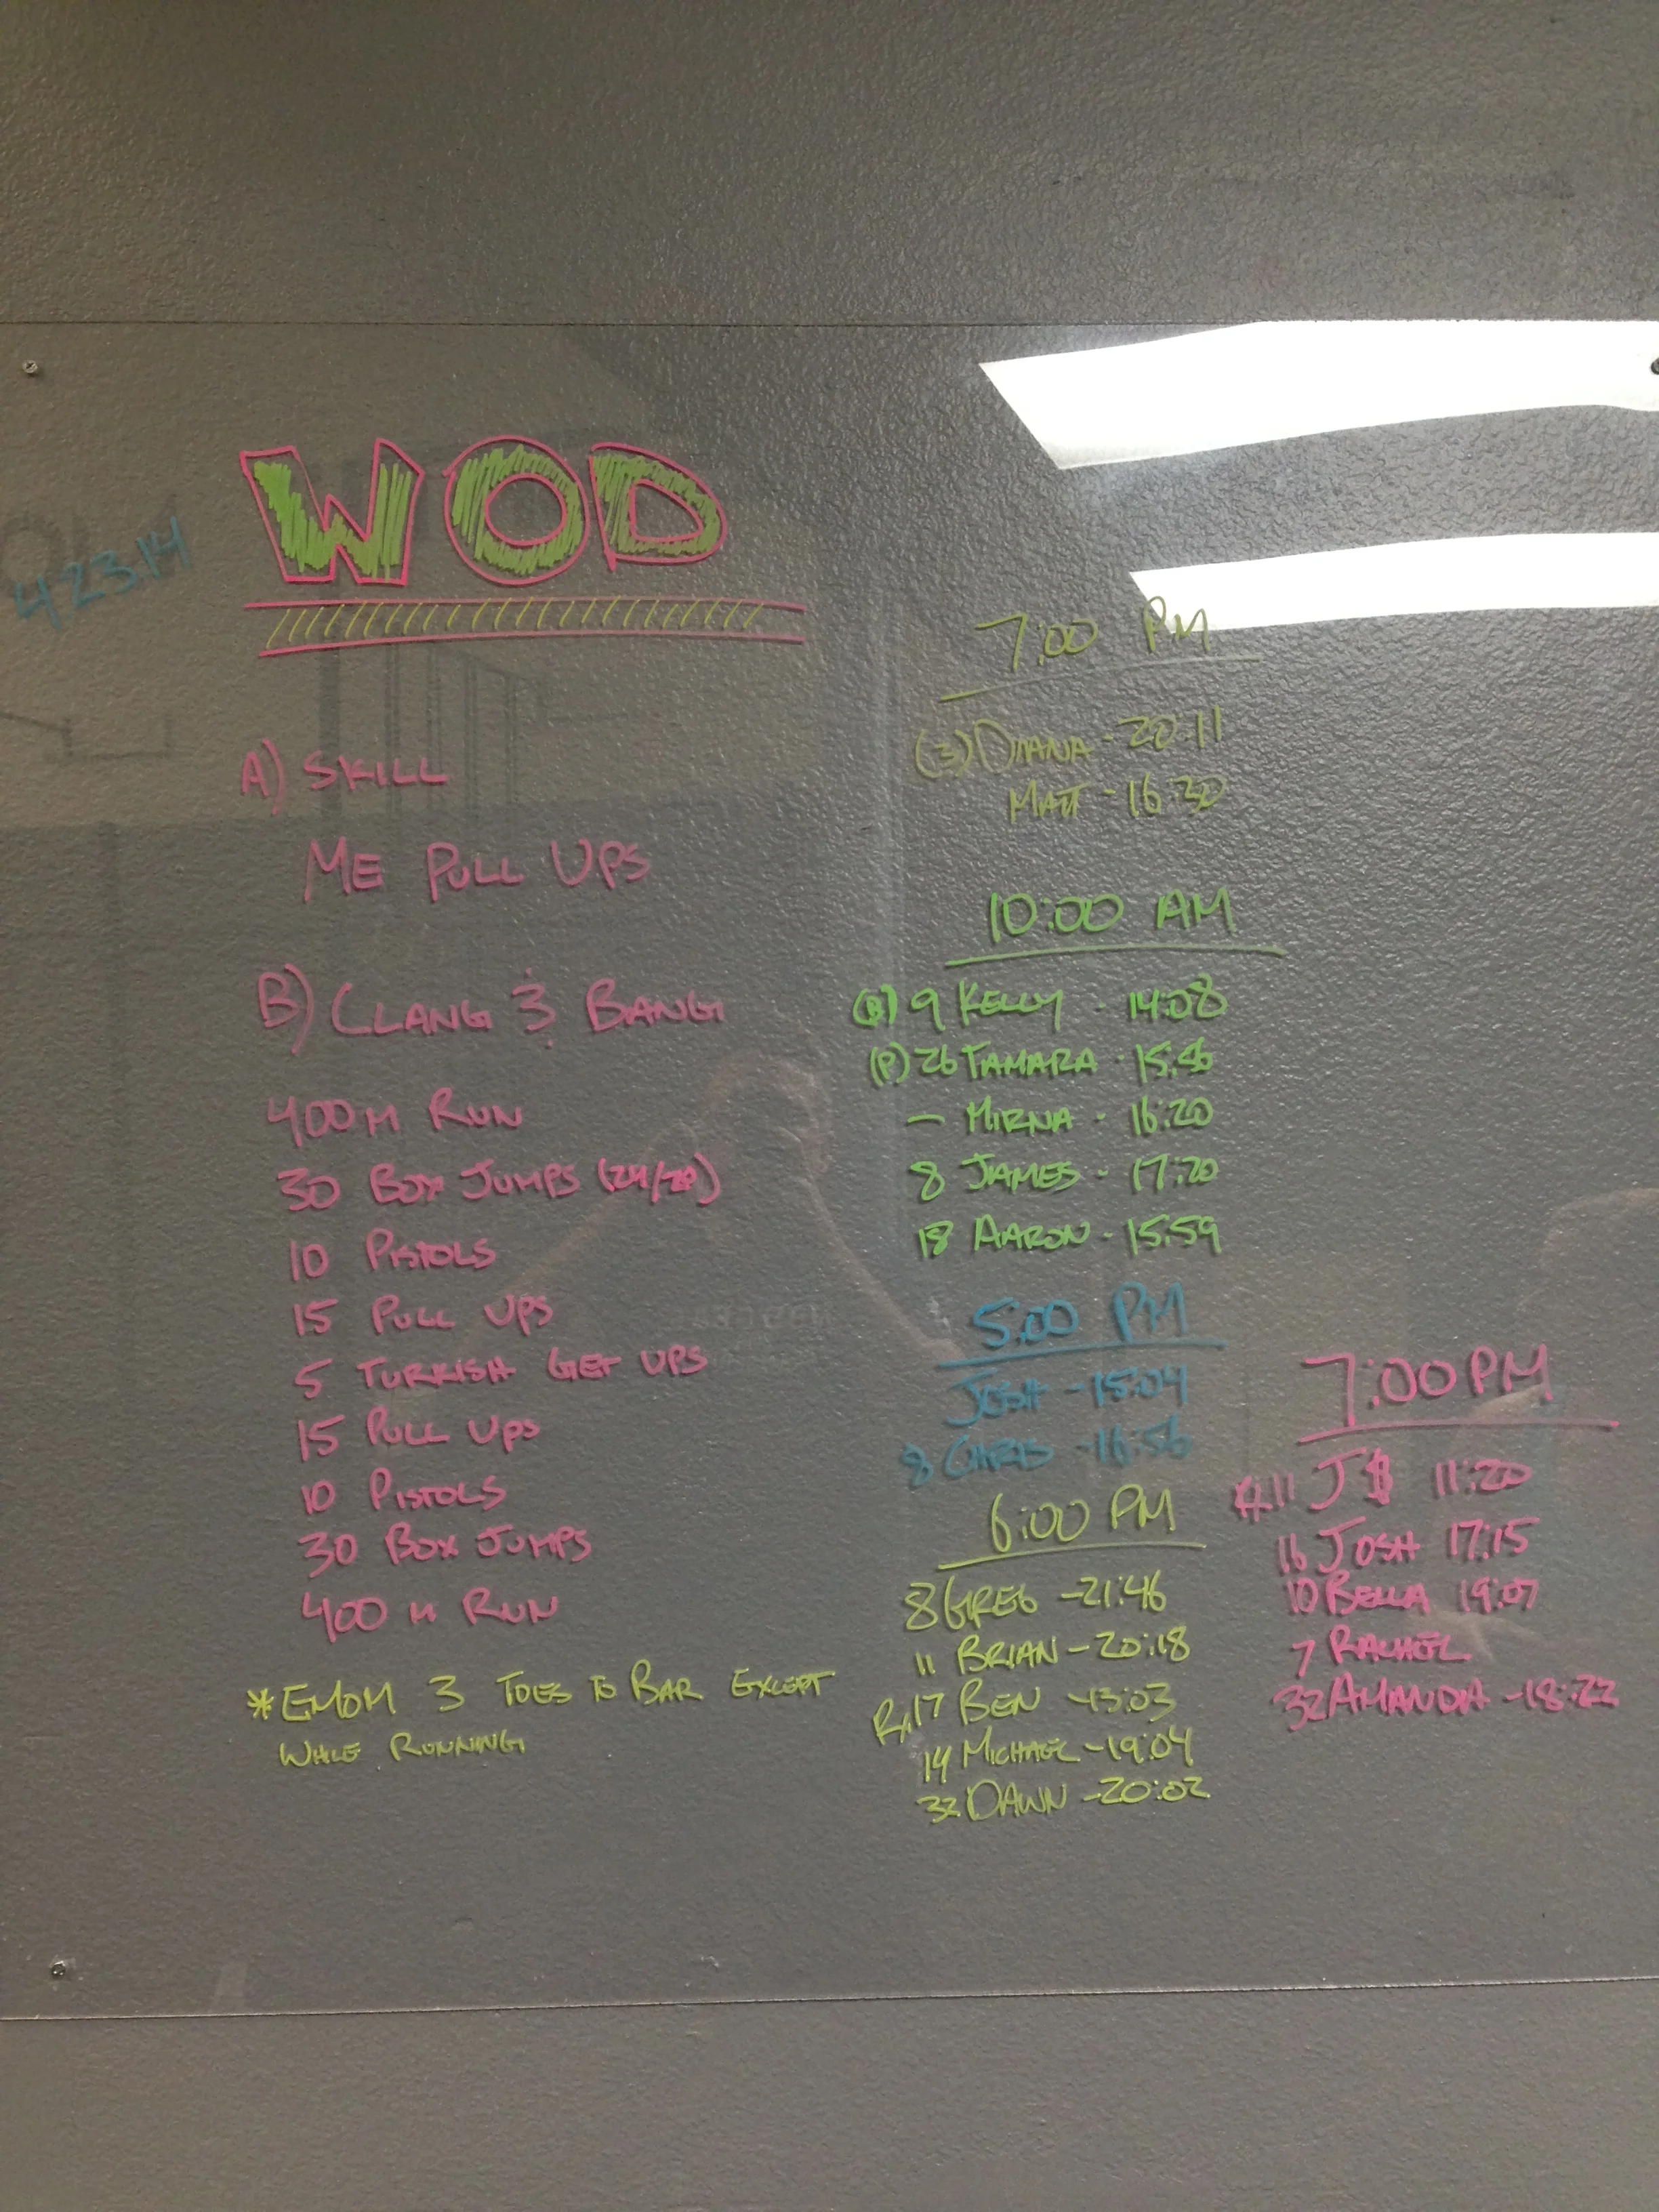 WOD
4.23.14
A) SKILL
ME PULL UPS
B) CLANG & BANG
400 M RUN
30 BOX JUMPS (24/20)
10 PISTOLS
15 PULL UPS
5 TURKISH GET UPS
15 PULL UPS
10 PISTOLS
30 BOX JUMPS
400 M RUN
* EMOM 3 TOES TO BAR EXCEPT
WHILE RUNNING
7:00 PM
(3) DIANA - 20:11
MATT - 16:30
10:00 AM
9 KELLY - 14:08
(P) 26 TAMARA - 15:56
— MIRNA - 16:20
8 JAMES - 17:20
18 AARON - 15:59
5:00 PM
JOSH - 15:04
8 CHRIS - 16:56
6:00 PM
8 GREG - 21:46
11 BRIAN - 20:18
Rx 17 BEN - 13:03
14 MICHAEL - 19:04
32 DAWN - 20:02
7:00 PM
Rx 11 J$ 11:20
16 JOSH 17:15
10 BELLA 19:07
7 RACHEL
32 AMANDA - 18:22